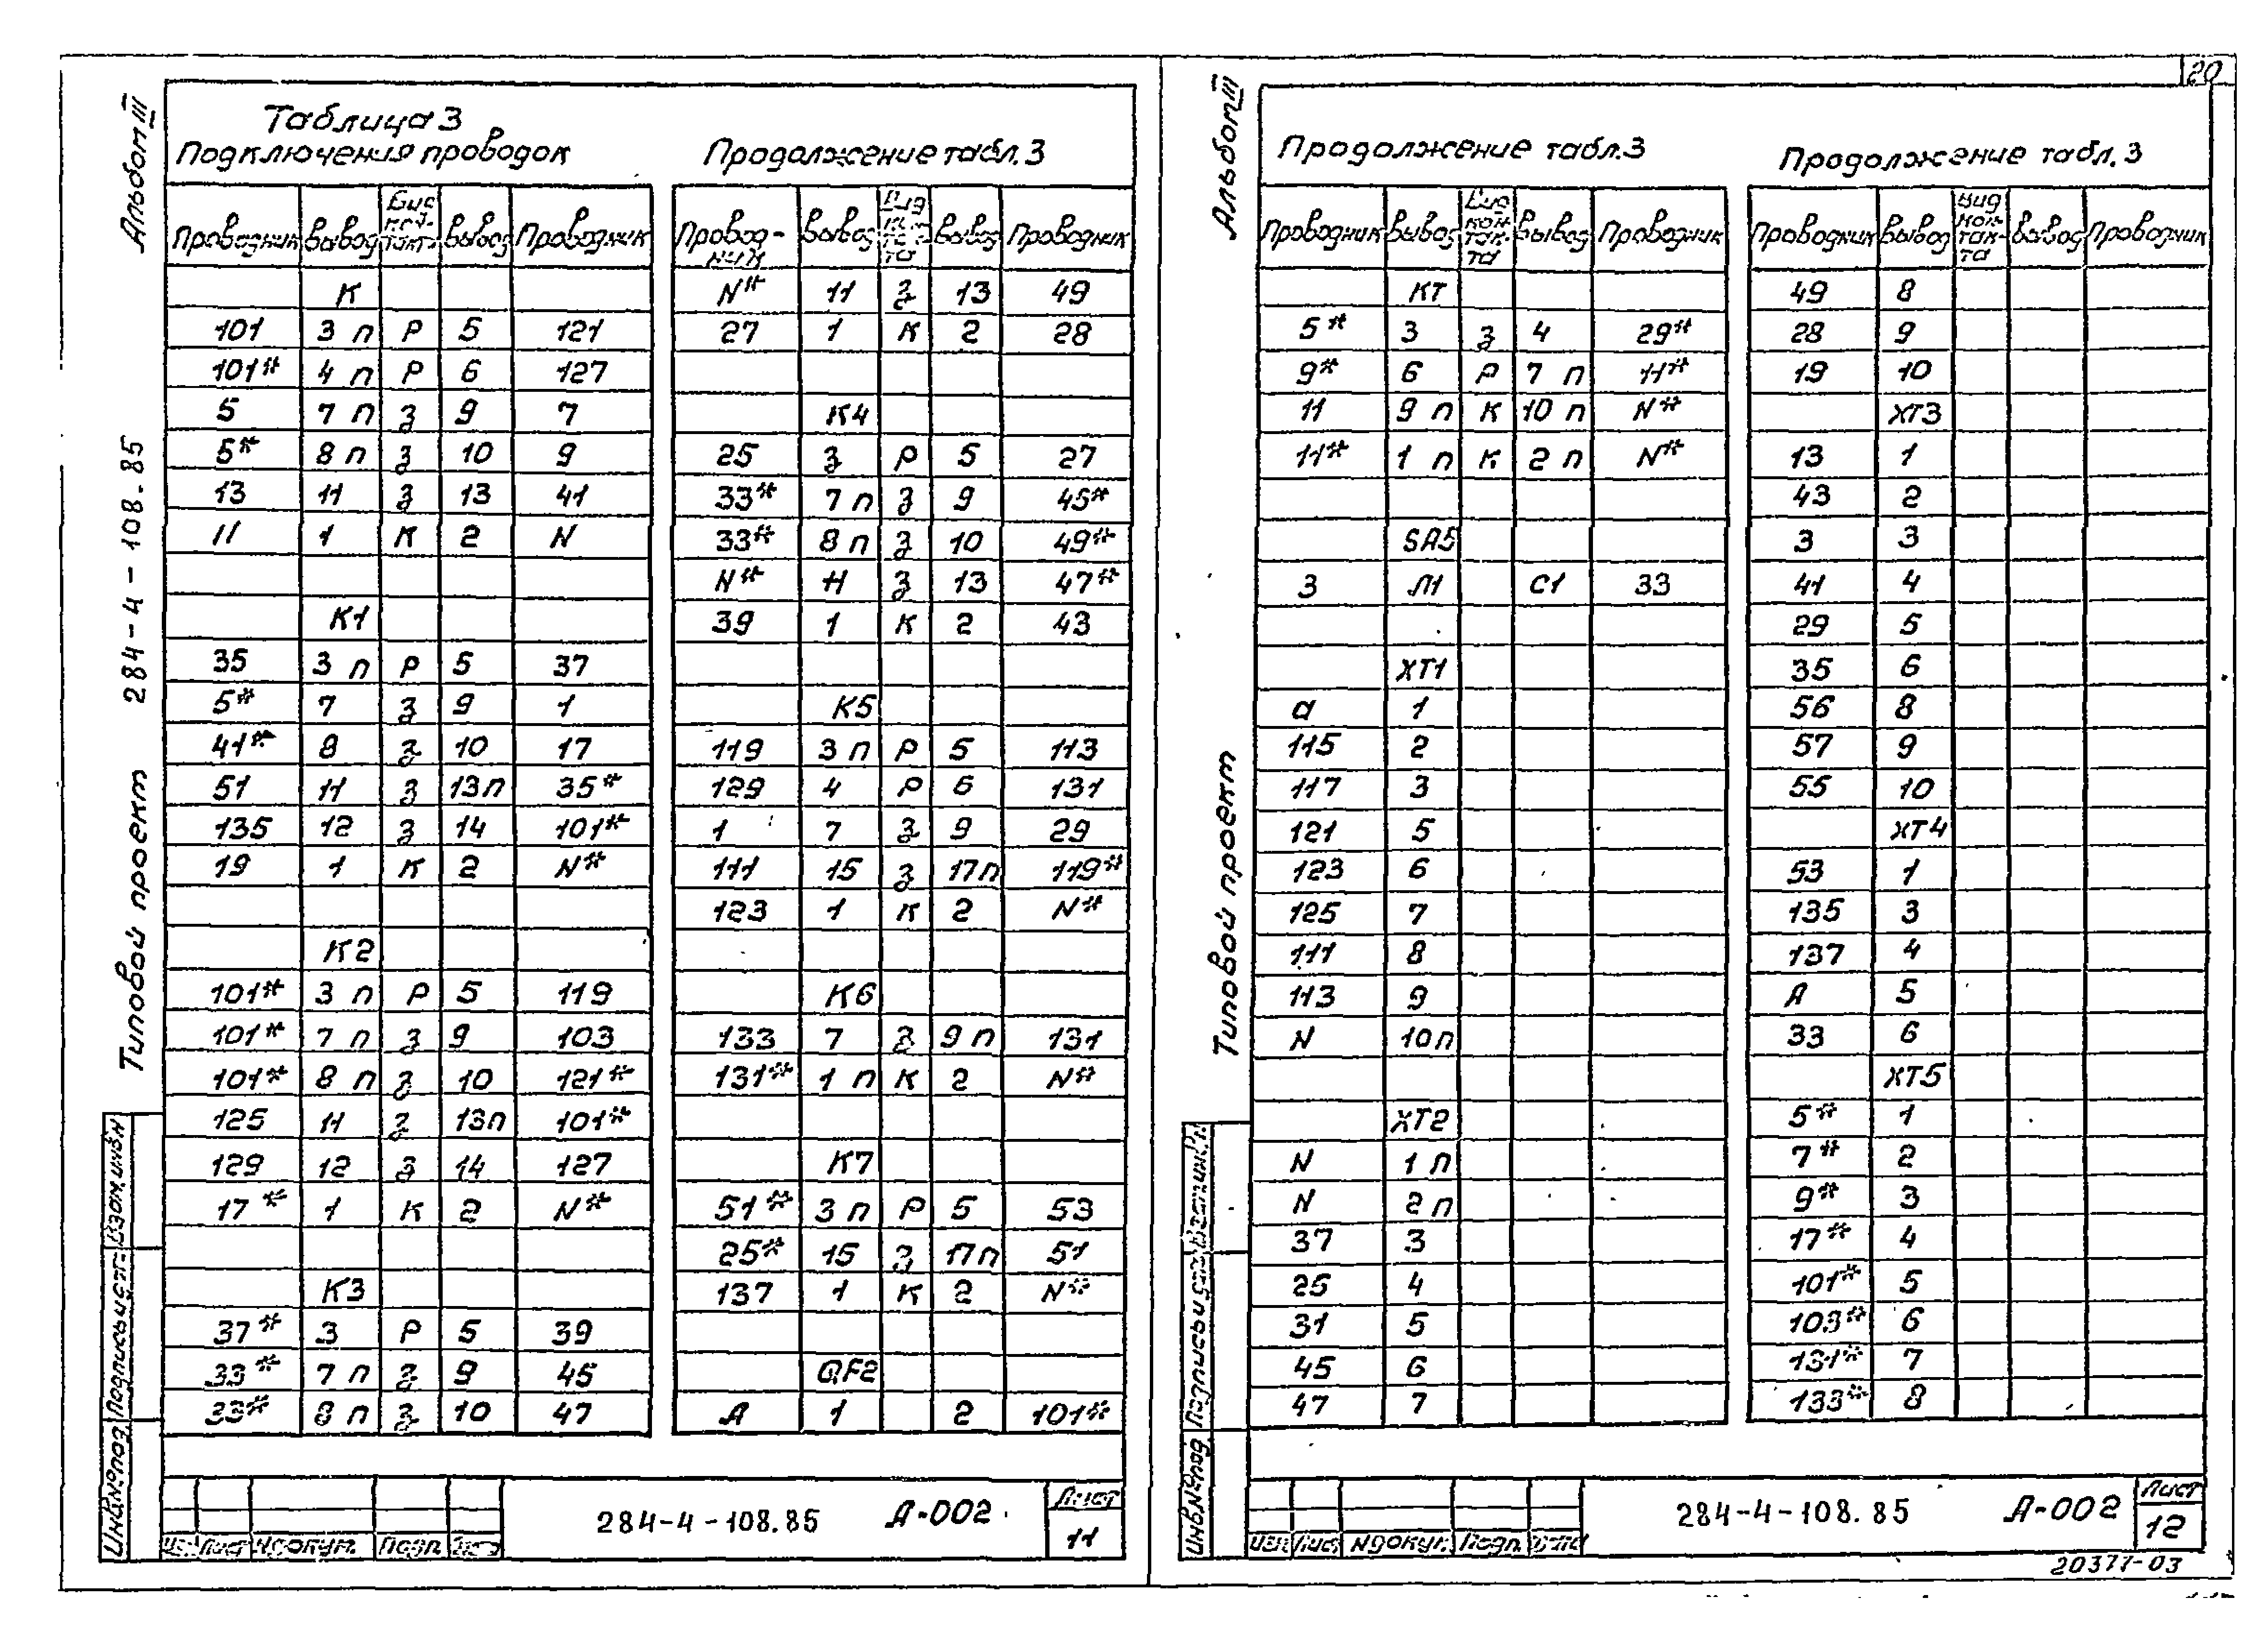 20
Альбом III
Типовой проект 284-4-108.85
Таблица 3
Подключения проводок
Проводник Вывод Вид кон-такта Вывод Проводник
К
101 3 п Р 5 121
101* 4 п Р 6 127
5 7 п З 9 7
5* 8 п З 10 9
13 11 З 13 41
11 1 К 2 N
К1
35 3 п Р 5 37
5* 7 З 9 1
41* 8 З 10 17
51 11 З 13п 35*
135 12 З 14 101*
19 1 К 2 N*
К2
101* 3 п Р 5 119
101* 7 п З 9 103
101* 8 п З 10 121*
125 11 З 13п 101*
129 12 З 14 127
17* 1 К 2 N*
К3
37* 3 Р 5 39
33* 7 п З 9 45
33* 8 п З 10 47
Продолжение табл. 3
Провод-ник Вывод Вид кон-так-та Вывод Проводник
N* 11 З 13 49
27 1 К 2 28
К4
25 3 Р 5 27
33* 7 п З 9 45*
33* 8 п З 10 49*
N* 11 З 13 47*
39 1 К 2 43
К5
119 3 п Р 5 113
129 4 Р 6 131
1 7 З 9 29
111 15 З 17п 119*
123 1 К 2 N*
К6
133 7 З 9 п 131
131* 1 п К 2 N*
К7
51* 3 п Р 5 53
25* 15 З 17п 51
137 1 К 2 N*
QF2
А 1 2 101*
Взам. инв. №
Подпись и дата
Инв. № подл.
Изм Лист № докум. Подп. Дата
284-4-108.85 А-002
Лист
11
Альбом III
Типовой проект
Продолжение табл. 3
Проводник Вывод Вид кон-так-та Вывод Проводник
КТ
5* 3 З 4 29*
9* 6 Р 7 п 11*
11 9 п К 10 п N*
11* 1 п К 2 п N*
SA5
3 Л1 С1 33
ХТ1
а 1
115 2
117 3
121 5
123 6
125 7
111 8
113 9
N 10п
ХТ2
N 1 п
N 2 п
37 3
25 4
31 5
45 6
47 7
Продолжение табл. 3
Проводник Вывод Вид кон-так-та Вывод Проводник
49 8
28 9
19 10
ХТ3
13 1
43 2
3 3
41 4
29 5
35 6
56 8
57 9
55 10
ХТ4
53 1
135 3
137 4
А 5
33 6
ХТ5
5* 1
7* 2
9* 3
17* 4
101* 5
103* 6
131* 7
133* 8
Взам. инв. №
Подпись и дата
Инв. № подл.
Изм Лист № докум. Подп. Дата
284-4-108.85 А-002
Лист
12
20377-03